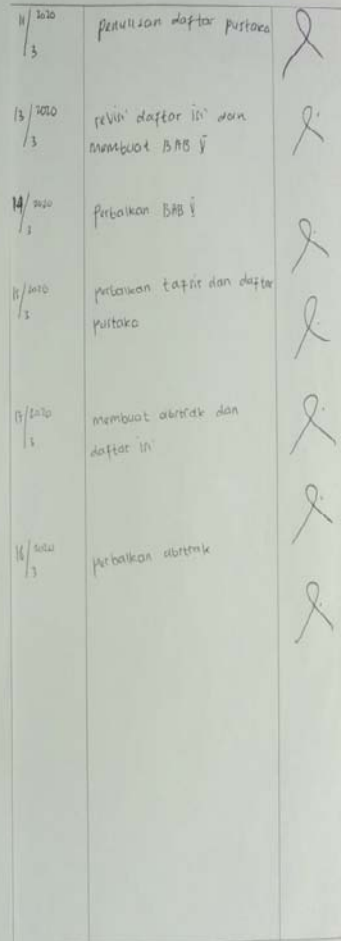 11/3 2020 penulisan daftar pustaka
13/3 2020 revisi daftar isi dan
membuat BAB V
14/3 2020 Perbaikan BAB V
15/3 2020 perbaikan tafsir dan daftar
pustaka
membuat abstrak dan
daftar isi
16/3 2020 perbaikan abstrak